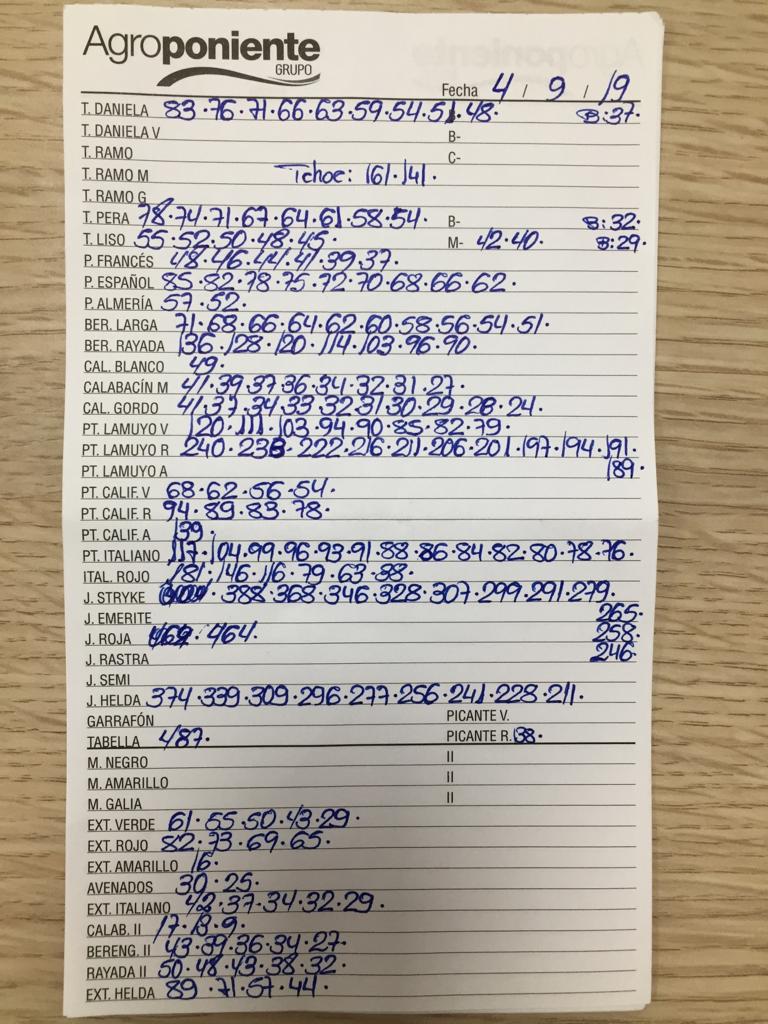 Agroponiente
GRUPO
Fecha 4 / 9 / 19
T. DANIELA 83·76·71·66·63·59·54·51·48· B:37·
T. DANIELA V B-
T. RAMO C-
T. RAMO M Tchoc: 161·141·
T. RAMO G
T. PERA 78·74·71·67·64·61·58·54· B- B:32·
T. LISO 55·52·50·48·45· M- 42·40· B:29·
P. FRANCÉS 48·46·44·41·39·37·
P. ESPAÑOL 85·82·78·75·72·70·68·66·62·
P. ALMERÍA 57·52·
BER. LARGA 71·68·66·64·62·60·58·56·54·51·
BER. RAYADA 136·128·120·114·103·96·90·
CAL. BLANCO 49·
CALABACÍN M 41·39·37·36·34·32·31·27·
CAL. GORDO 41·37·34·33·32·31·30·29·28·24·
PT. LAMUYO V 120·111·103·94·90·85·82·79·
PT. LAMUYO R 240·233·222·216·211·206·201·197·194·191·
PT. LAMUYO A 189·
PT. CALIF. V 68·62·56·54·
PT. CALIF. R 94·89·83·78·
PT. CALIF. A 139·
PT. ITALIANO 117·104·99·96·93·91·88·86·84·82·80·78·76·
ITAL. ROJO 181·146·116·79·63·38·
J. STRYKE 388·368·346·328·307·299·291·279·
J. EMERITE 265·
J. ROJA 464· 258·
J. RASTRA 246·
J. SEMI
J. HELDA 374·339·309·296·277·256·241·228·211·
GARRAFÓN PICANTE V.
TABELLA 487· PICANTE R. 138·
M. NEGRO II
M. AMARILLO II
M. GALIA II
EXT. VERDE 61·55·50·43·29·
EXT. ROJO 82·73·69·65·
EXT. AMARILLO 16·
AVENADOS 30·25·
EXT. ITALIANO 42·37·34·32·29·
CALAB. II 17·13·9·
BERENG. II 43·39·36·34·27·
RAYADA II 50·48·43·38·32·
EXT. HELDA 89·71·57·44·